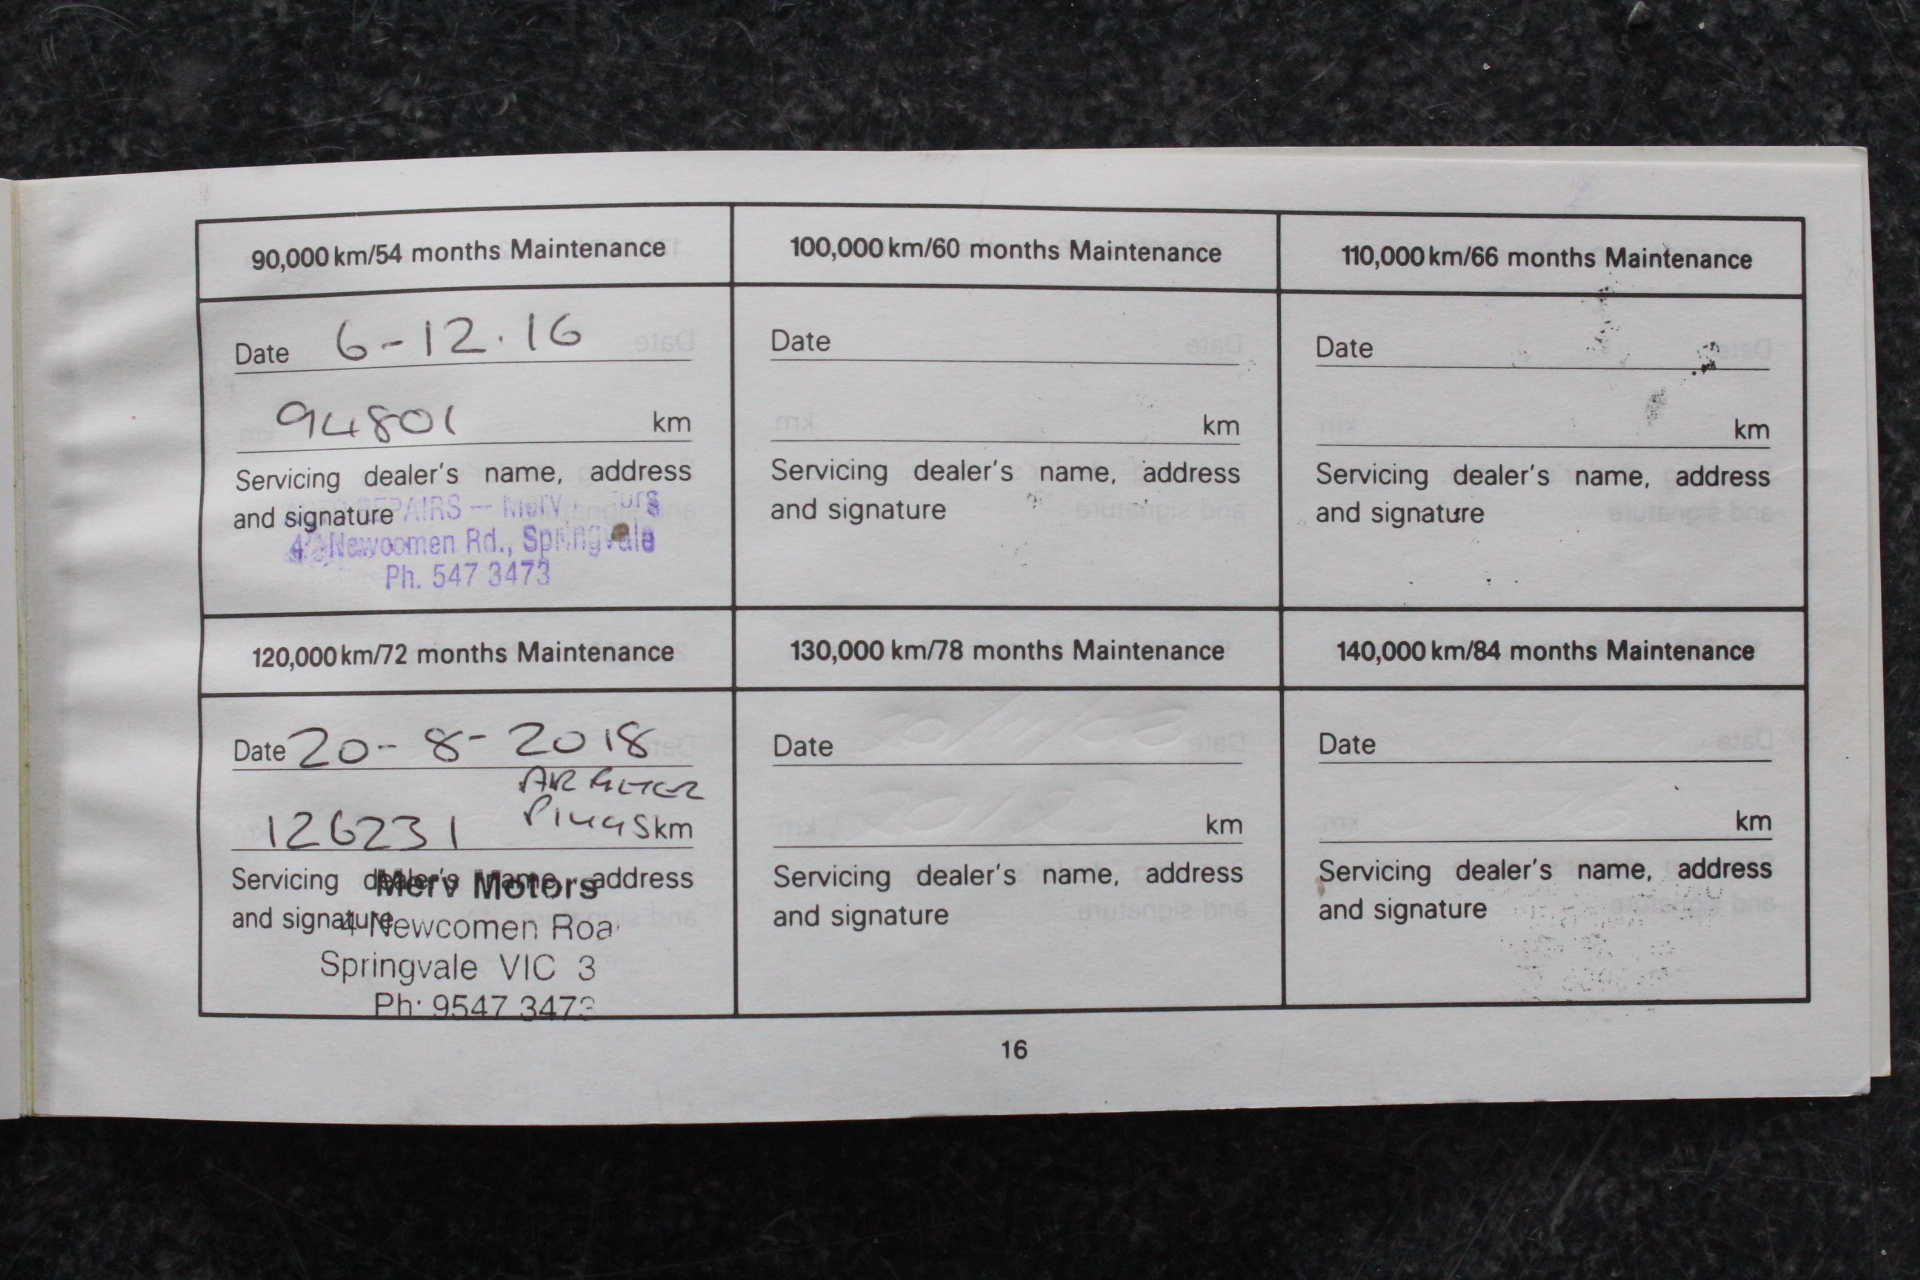 90,000 km/54 months Maintenance
Date 6-12.16
94801 km
Servicing dealer's name, address
and signature
REPAIRS - Merv
4 Newcomen Rd., Springvale
Ph. 547 3473
100,000 km/60 months Maintenance
Date
km
Servicing dealer's name, address
and signature
110,000 km/66 months Maintenance
Date
km
Servicing dealer's name, address
and signature
120,000 km/72 months Maintenance
Date 20-8-2018
AIR FILTER
PlugS
126231 km
Servicing dealer's name, address
and signature
Merv Motors
4 Newcomen Roa
Springvale VIC 3
Ph: 9547 3473
130,000 km/78 months Maintenance
Date
km
Servicing dealer's name, address
and signature
140,000 km/84 months Maintenance
Date
km
Servicing dealer's name, address
and signature
16